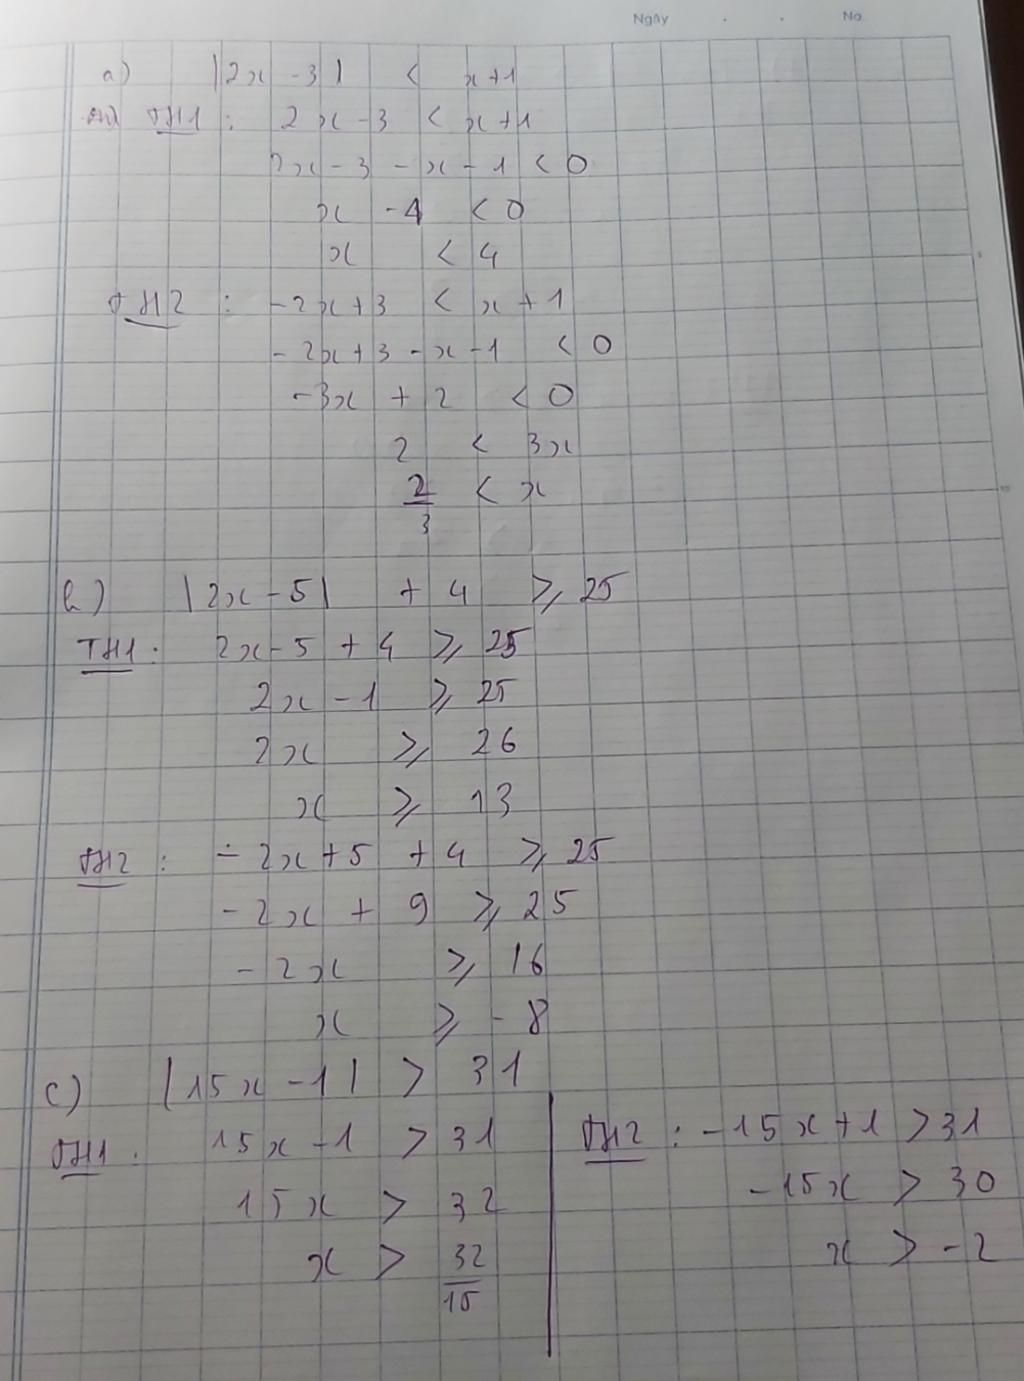 Ngày . . No.
a) |2x - 3| < x+1
TH1 : 2x - 3 < x+1
2x - 3 - x - 1 < 0
x - 4 < 0
x < 4
TH2 : -2x+3 < x+1
-2x+3 - x - 1 < 0
-3x + 2 < 0
2 < 3x
2/3 < x
b) |2x - 5| + 4 ⩾ 25
TH1 : 2x - 5 + 4 ⩾ 25
2x - 1 ⩾ 25
2x ⩾ 26
x ⩾ 13
TH2 : -2x+5 + 4 ⩾ 25
-2x + 9 ⩾ 25
-2x ⩾ 16
x ⩾ -8
c) |15x - 1| > 31
TH1 : 15x - 1 > 31
15x > 32
x > 32/15
TH2 : -15x+1 > 31
-15x > 30
x > -2